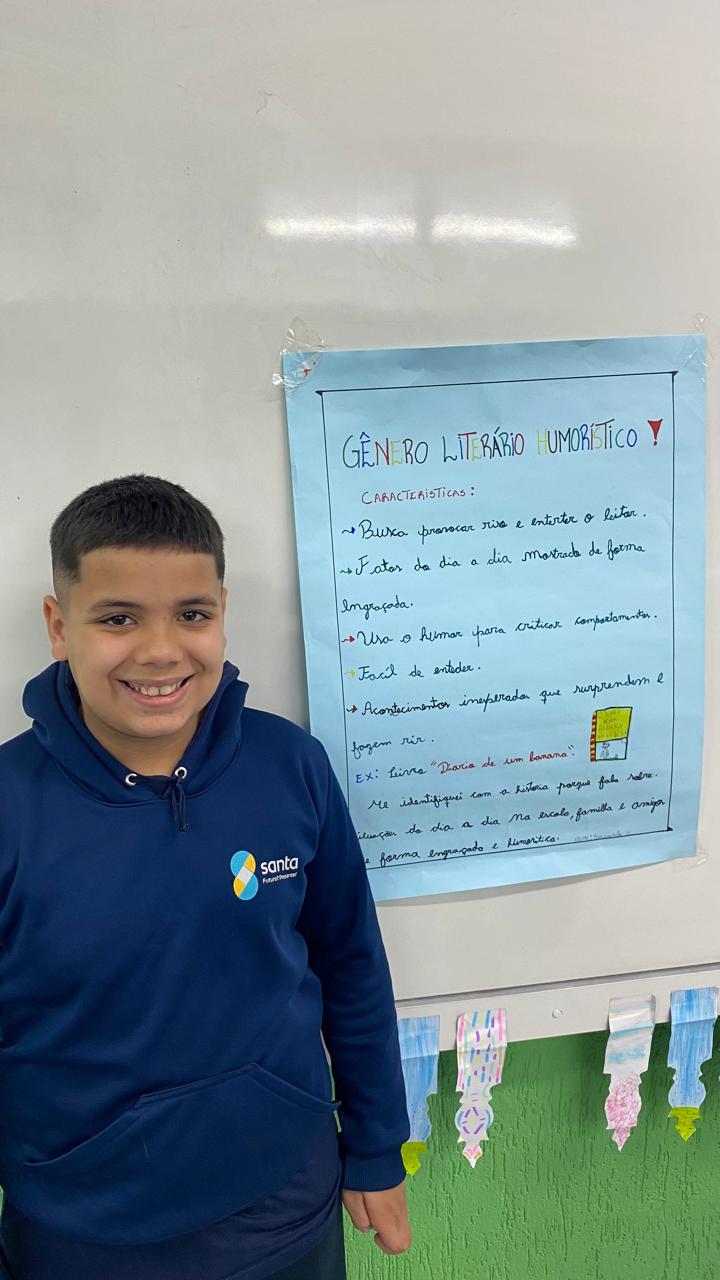 GÊNERO LITERÁRIO HUMORÍSTICO !
CARACTERISTICAS :
→ Busca provocar riso e enterter o leitor .
→ Fatos do dia a dia mostrado de forma
engraçada.
→ Usa o humor para criticar comportamentos .
→ Facíl de enteder .
→ Acontecimentos inesperados que surprendem e
fazem rir .
EX: Livro "Diario de um banana".
Me identifiquei com a historia porque fala sobre.
ituações do dia a dia na escola, familha e amigos
e forma engraçado e humoritica.
santa
Futuro? Presente!